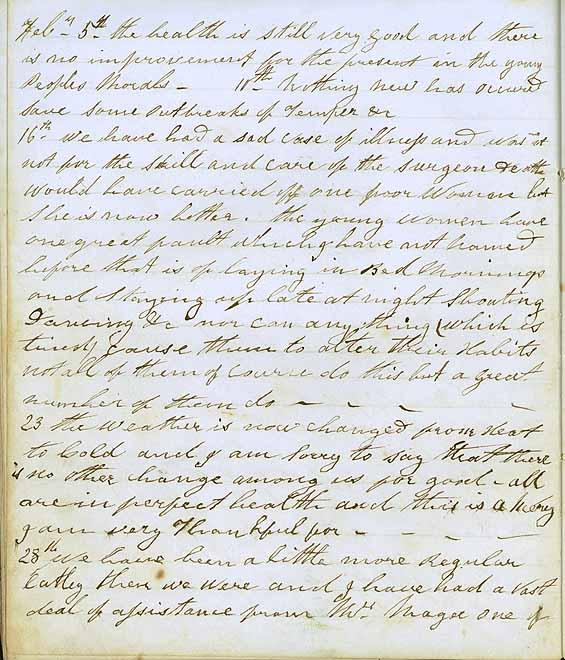 Feby 5th the health is still very good and there
is no improvement for the present in the young
Peoples Morals - 10th Nothing new has occured
save some outbreaks of Temper &c
16th we have had a sad case of illness and was it
not for the skill and care of the surgeon death
would have carried off one poor Woman but
She is now better. the young Women have
one great fault which I have not named
before that is of laying in Bed Mornings
and Staying up late at night Shouting
Dancing &c nor can any thing (which is
tried) cause them to alter their Habits
not all of them of course do this but a great
number of them do - - - -
23 the Weather is now changed from Heat
to Cold and I am sorry to say that there
is no other change among us for good - all
are in perfect health and this is a Mercy
I am very Thankful for - - - -
28th We have been a little more Regular
Earley then we were and I have had a vast
deal of assistance from Mrs Magee one of